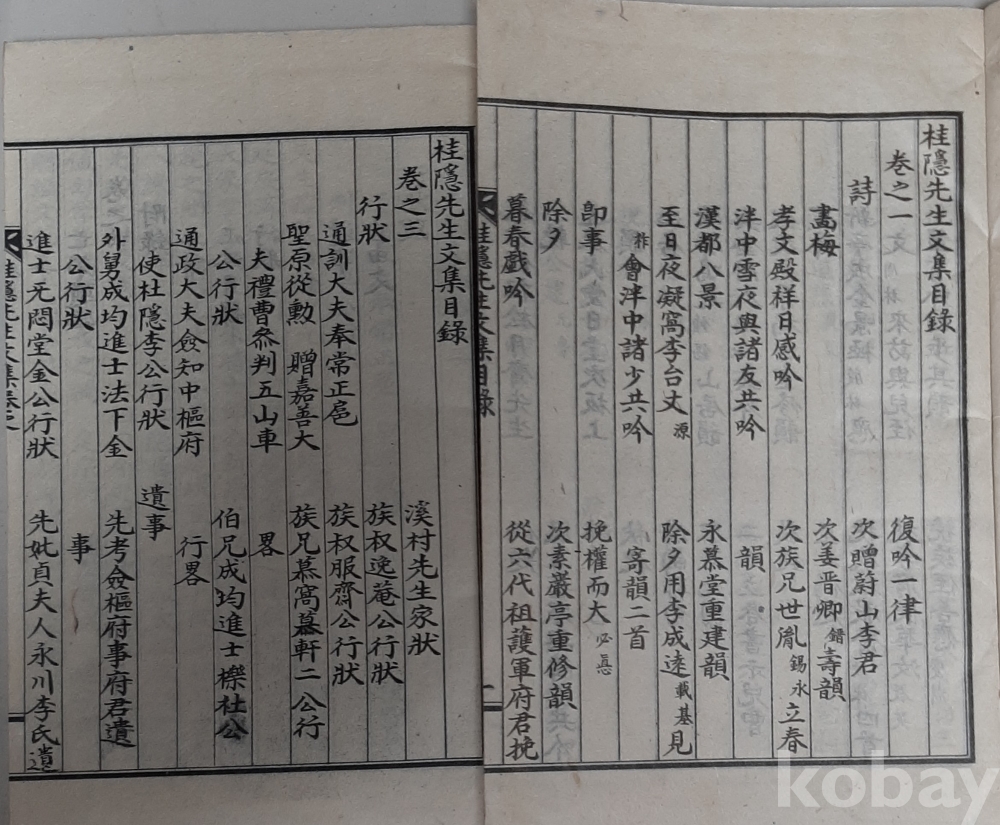 桂隱先生文集目錄
卷之一
詩
畵梅
孝文殿祥日感吟
泮中雪夜與諸友共吟
漢都八景
至日夜凝窩李台丈源
祚會泮中諸少共吟
卽事
除夕
暮春戱吟
復吟一律
次贈蔚山李君
次姜晋卿錯壽韻
次族兄世胤錫永立春
二韻
永慕堂重建韻
除夕用李成逵載基見
寄韻二首
挽權而大必㥁
次素巖亭重修韻
從六代祖護軍府君挽
桂隱先生文集目錄
一
桂隱先生文集目錄
卷之三
行狀
通訓大夫奉常正扈
聖原從勳 贈嘉善大
夫禮曹叅判五山車
公行狀
通政大夫僉知中樞府
使杜隱李公行狀
外舅成均進士法下金
公行狀
進士无悶堂金公行狀
溪村先生家狀
族叔逸菴公行狀
族叔服齋公行狀
族兄慕窩慕軒二公行
畧
伯兄成均進士櫟社公
行畧
遺事
先考僉樞府事府君遺
事
先妣貞夫人永川李氏遺
桂隱先生文集卷之
kobay